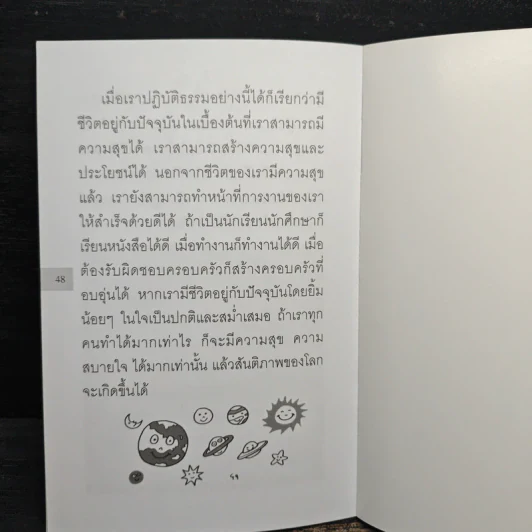 เมื่อเราปฏิบัติธรรมอย่างนี้ได้ก็เรียกว่ามี
ชีวิตอยู่กับปัจจุบันในเบื้องต้นที่เราสามารถมี
ความสุขได้ เราสามารถสร้างความสุขและ
ประโยชน์ได้ นอกจากชีวิตของเรามีความสุข
แล้ว เรายังสามารถทำหน้าที่การงานของเรา
ให้สำเร็จด้วยดีได้ ถ้าเป็นนักเรียนนักศึกษาก็
เรียนหนังสือได้ดี เมื่อทำงานก็ทำงานได้ดี เมื่อ
ต้องรับผิดชอบครอบครัวก็สร้างครอบครัวที่
48
อบอุ่นได้ หากเรามีชีวิตอยู่กับปัจจุบันโดยยิ้ม
น้อยๆ ในใจเป็นปกติและสม่ำเสมอ ถ้าเราทุก
คนทำได้มากเท่าไร ก็จะมีความสุข ความ
สบายใจ ได้มากเท่านั้น แล้วสันติภาพของโลก
จะเกิดขึ้นได้